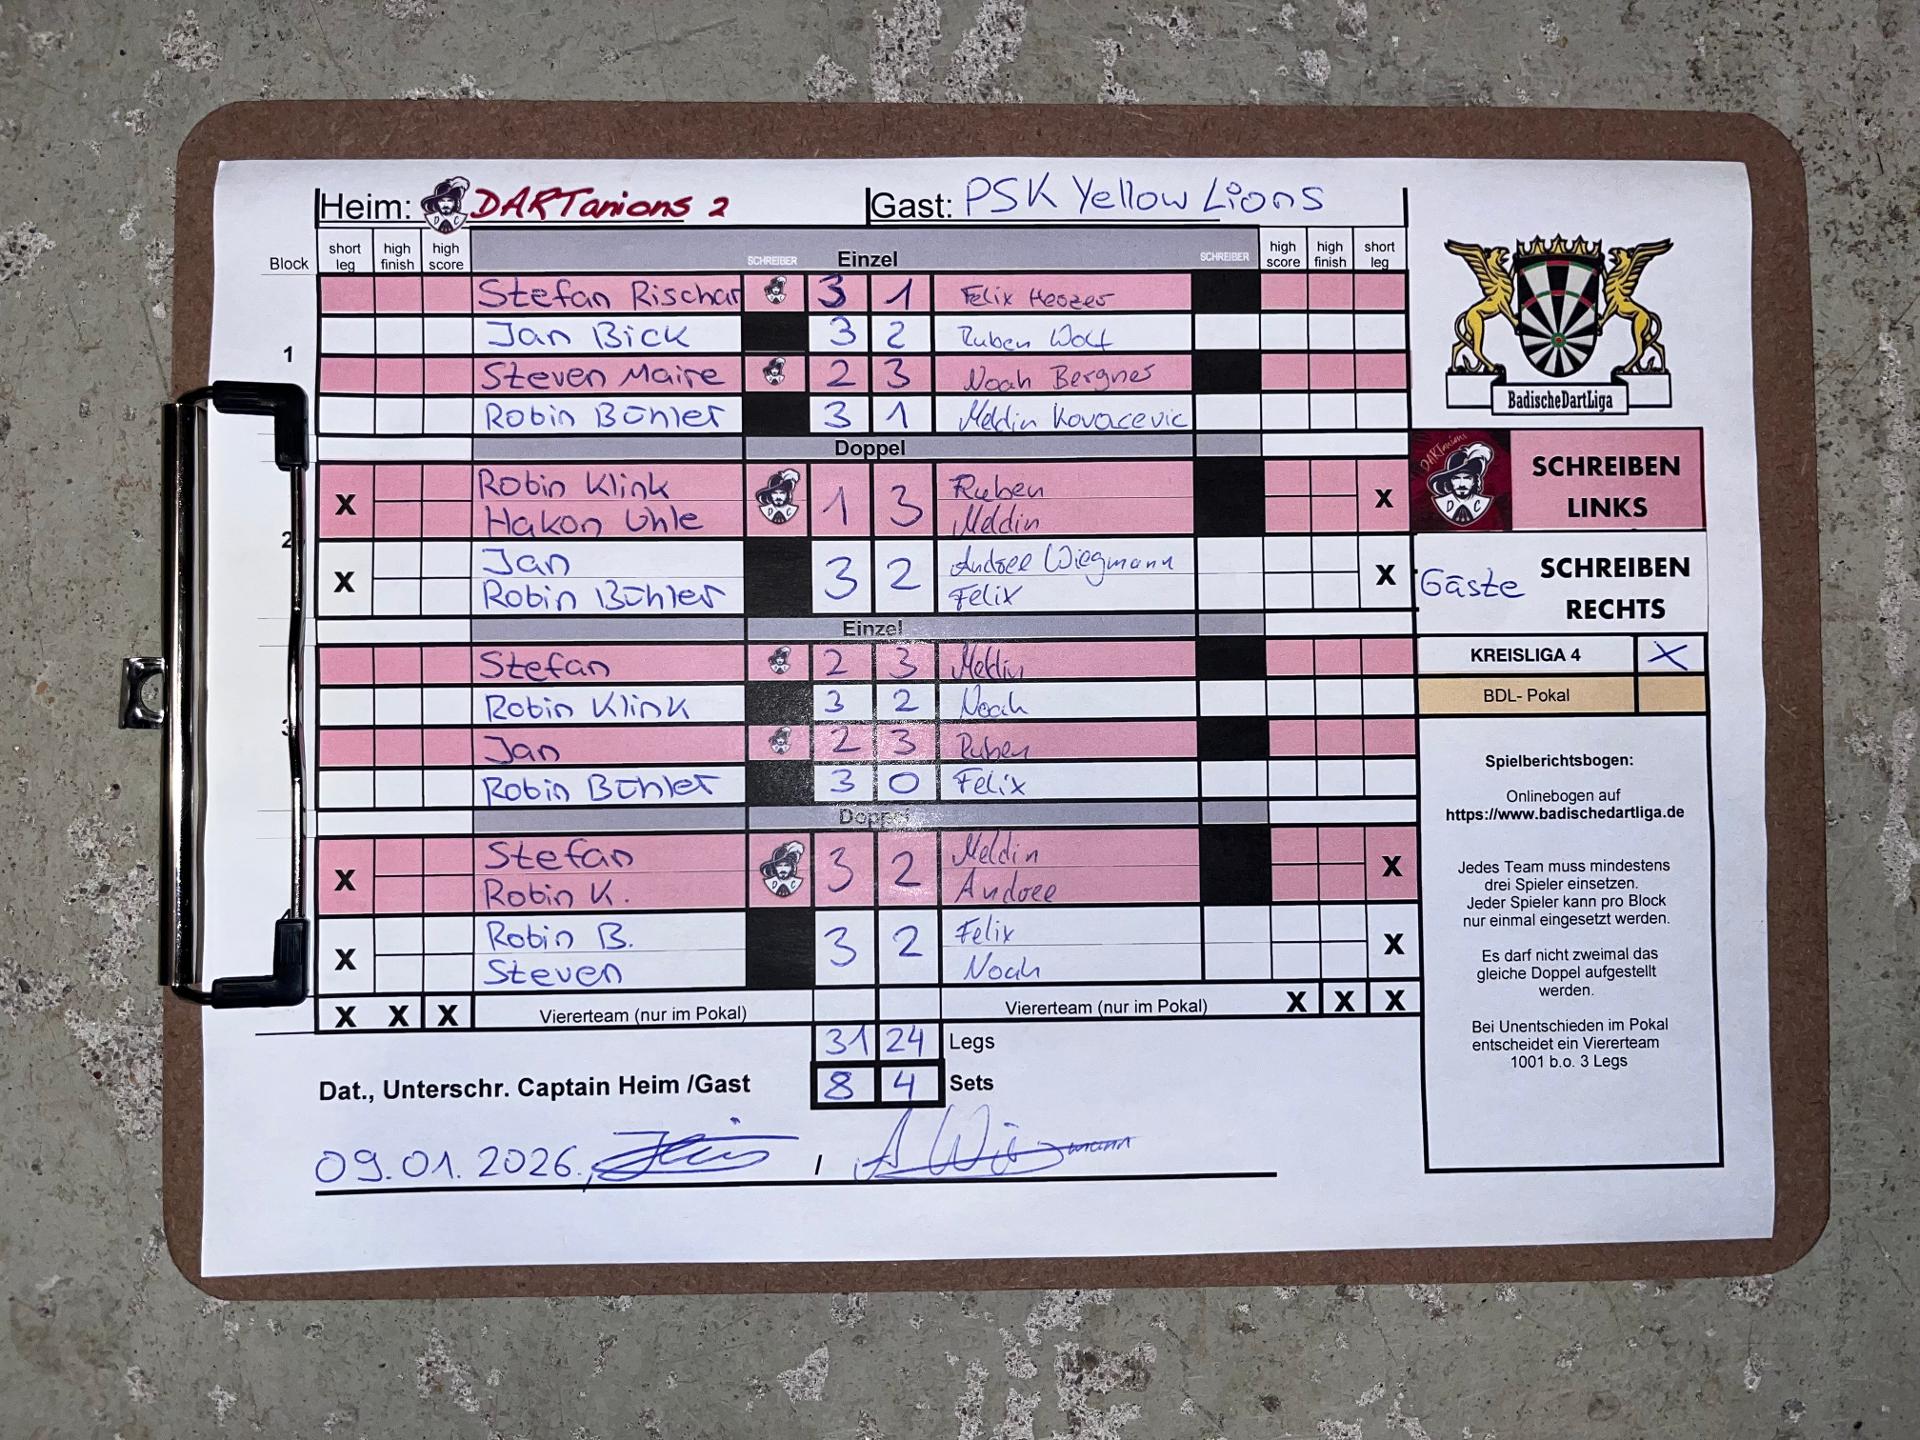 Heim: DARTanions 2 Gast: PSK Yellow Lions
Block short leg high finish high score SCHREIBER Einzel SCHREIBER high score high finish short leg
1
Stefan Rischar 3 1 Felix Herzer
Jan Bick 3 2 Ruben Wolf
Steven Maire 2 3 Noah Bergner
Robin Bühler 3 1 Meldin Kovacevic
Doppel
2
X Robin Klink 1 3 Ruben X
Hakon Uhle Meldin
X Jan 3 2 Andree Wiegmann X
Robin Bühler Felix
Einzel
3
Stefan 2 3 Meldin
Robin Klink 3 2 Noah
Jan 2 3 Ruben
Robin Bühler 3 0 Felix
Doppel
X Stefan 3 2 Meldin X
Robin K. Andree
X Robin B. 3 2 Felix X
Steven Noah
X X X Viererteam (nur im Pokal) Viererteam (nur im Pokal) X X X
31 24 Legs
Dat., Unterschr. Captain Heim /Gast 8 4 Sets
09.01.2026, / A Wiegmann
BadischeDartLiga
DARTanions
D C
SCHREIBEN
LINKS
Gäste SCHREIBEN
RECHTS
KREISLIGA 4 X
BDL- Pokal
Spielberichtsbogen:
Onlinebogen auf
https://www.badischedartliga.de
Jedes Team muss mindestens
drei Spieler einsetzen.
Jeder Spieler kann pro Block
nur einmal eingesetzt werden.
Es darf nicht zweimal das
gleiche Doppel aufgestellt
werden.
Bei Unentschieden im Pokal
entscheidet ein Viererteam
1001 b.o. 3 Legs